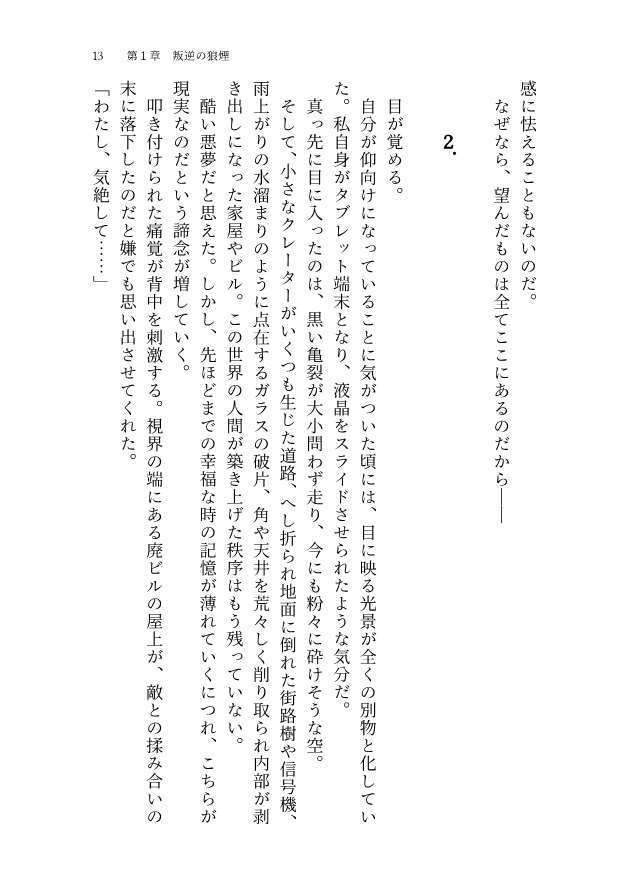 13　第１章　叛逆の狼煙
感に怯えることもないのだ。
なぜなら、望んだものは全てここにあるのだから――
2.
目が覚める。
自分が仰向けになっていることに気がついた頃には、目に映る光景が全くの別物と化してい
た。私自身がタブレット端末となり、液晶をスライドさせられたような気分だ。
真っ先に目に入ったのは、黒い亀裂が大小問わず走り、今にも粉々に砕けそうな空。
そして、小さなクレーターがいくつも生じた道路、へし折られ地面に倒れた街路樹や信号機、
雨上がりの水溜まりのように点在するガラスの破片、角や天井を荒々しく削り取られ内部が剥
き出しになった家屋やビル。この世界の人間が築き上げた秩序はもう残っていない。
酷い悪夢だと思えた。しかし、先ほどまでの幸福な時の記憶が薄れていくにつれ、こちらが
現実なのだという諦念が増していく。
叩き付けられた痛覚が背中を刺激する。視界の端にある廃ビルの屋上が、敵との揉み合いの
末に落下したのだと嫌でも思い出させてくれた。
「わたし、気絶して……」